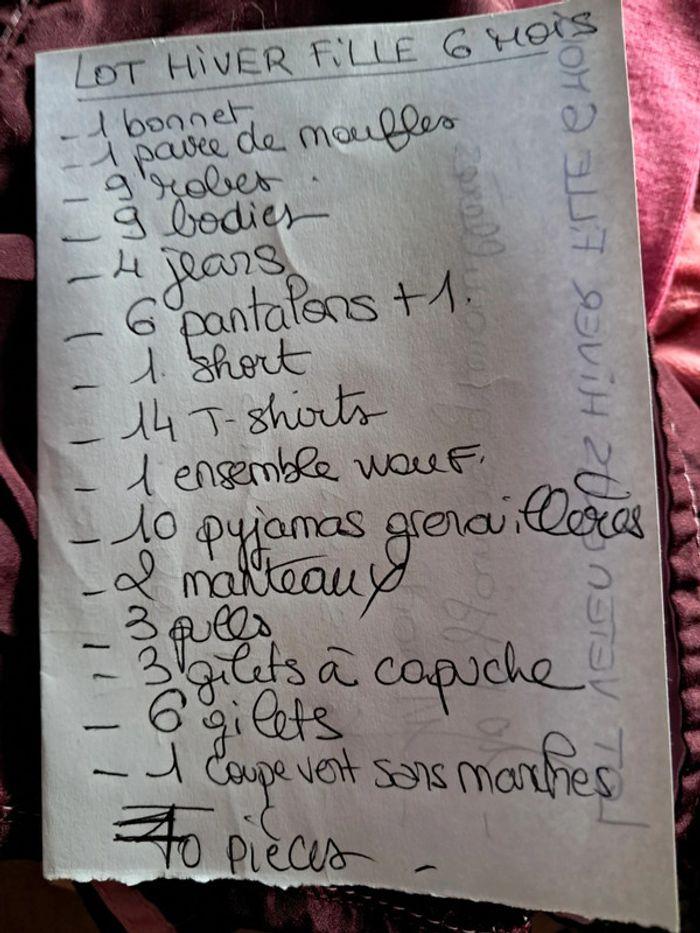 LOT HiVER FiLLE 6 MOIS
- 1 bonnet
- 1 paire de moufles
- 9 robes.
- 9 bodies
- 4 jeans
- 6 pantalons + 1.
- 1 short
- 14 T-shirts
- 1 ensemble
- 10 pyjamas grenouilleres
- 2 manteaux
- 3 pulls
- 3 gilets à capuche
- 6 gilets
- 1 coupe vent sans manches
70 pièces -